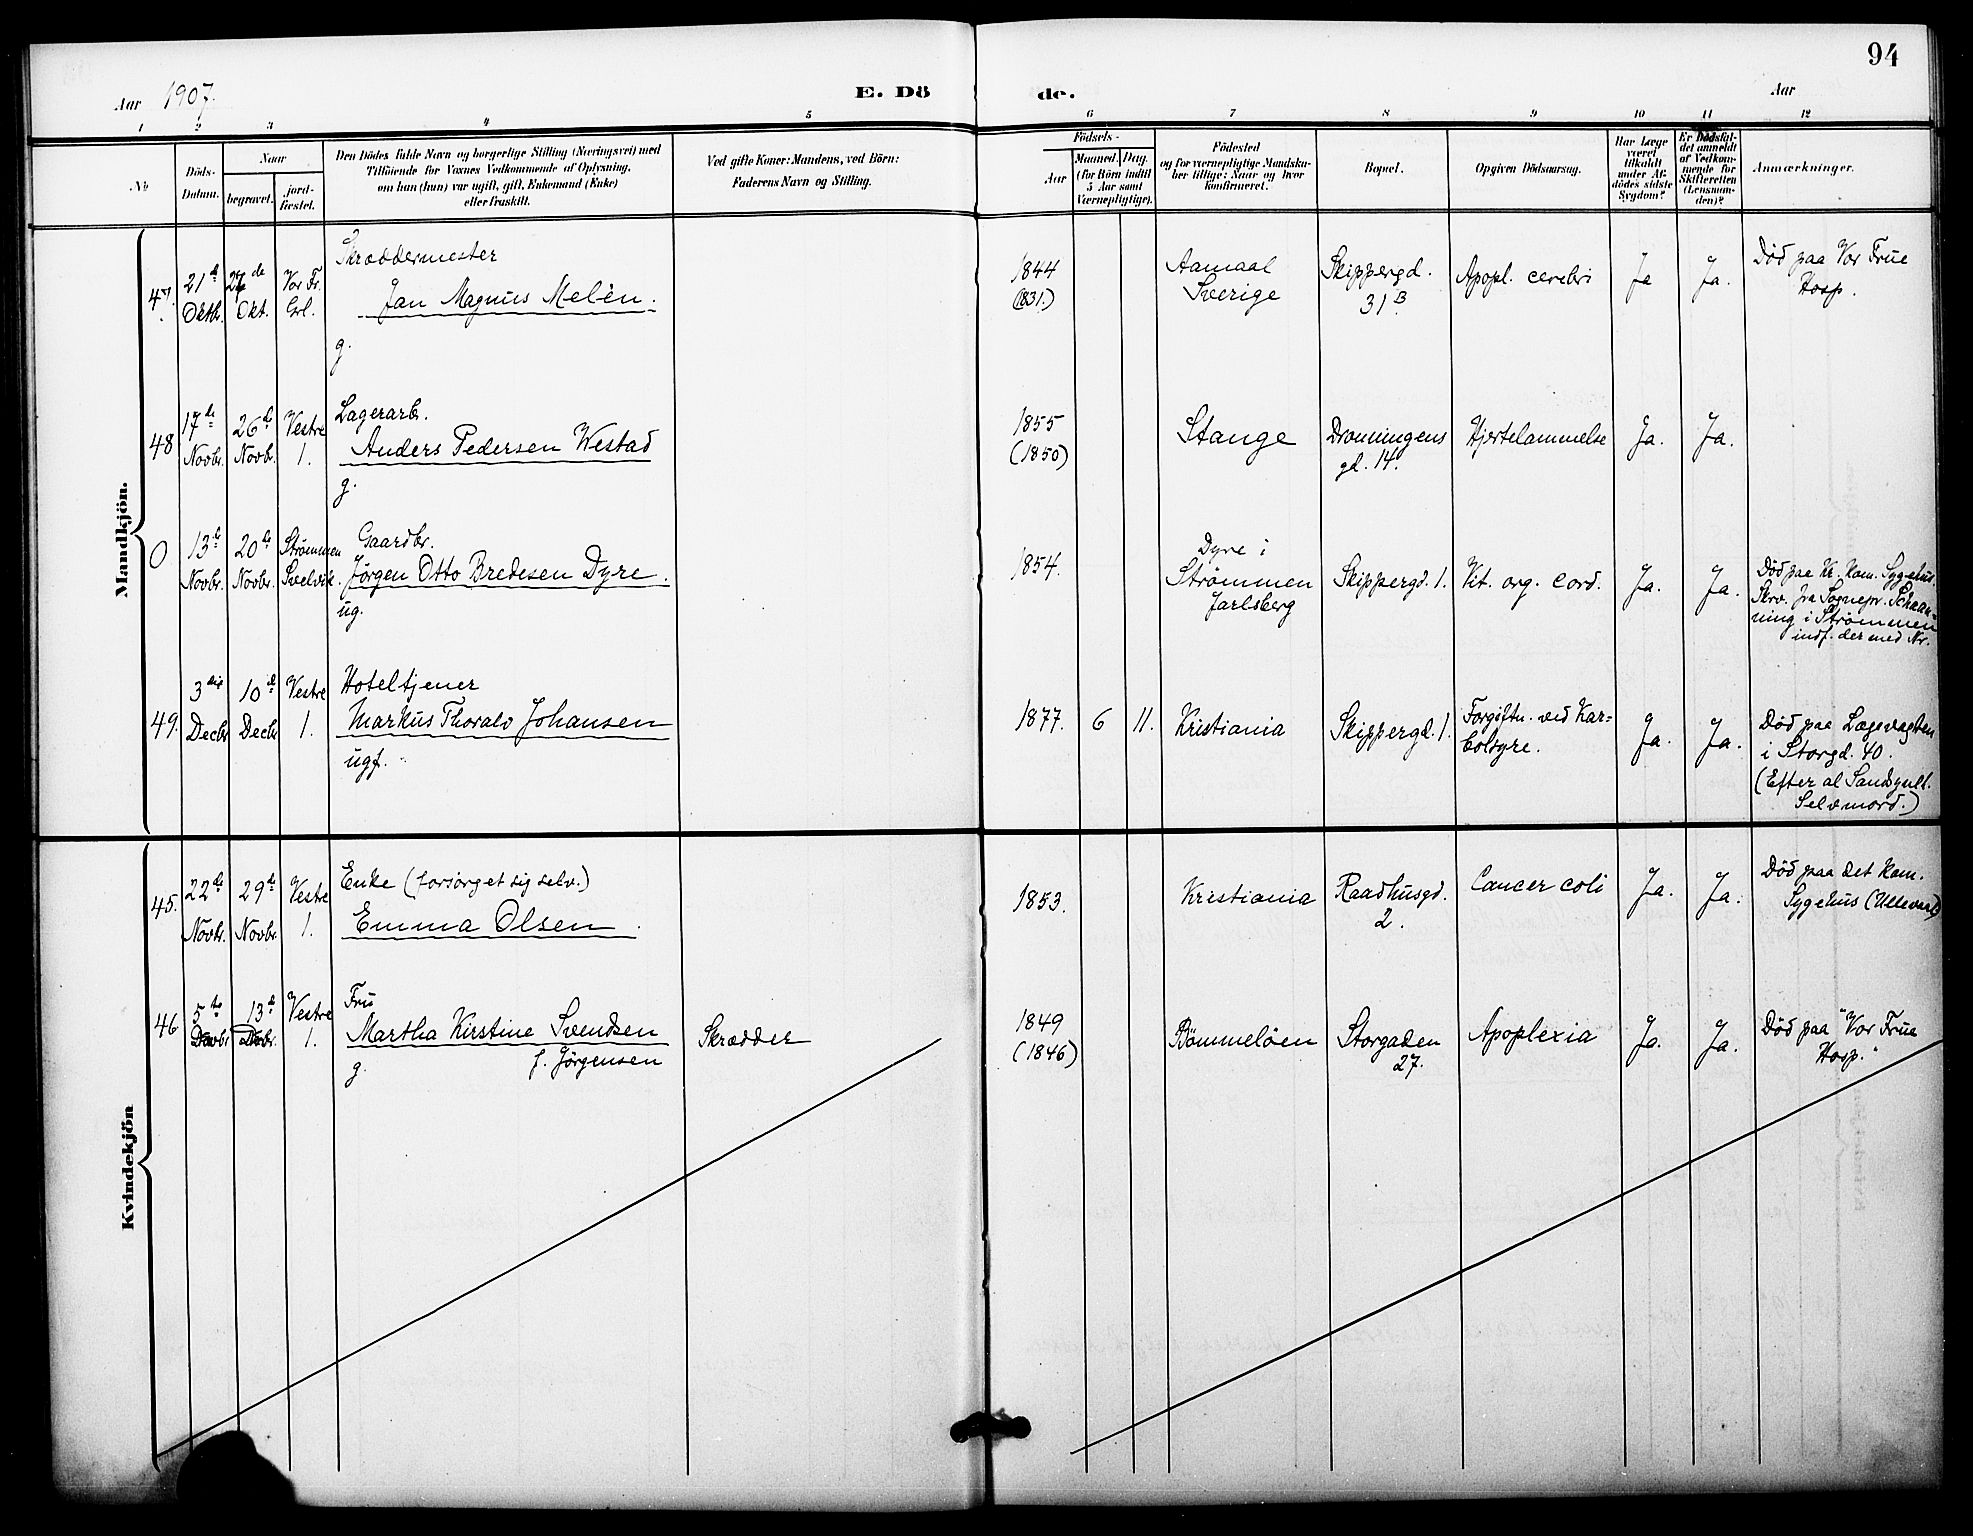 94
Aar 1907.
E. Dö de.
Aar
1 2 3 4 5 6 7 8 9 10 11 12
No
Döds-
Datum.
Naar
begravet.
jord-
fæstet.
Den Dödes fulde Navn og borgerlige Stilling (Næringsvei) med
Tilföiende for Voxnes Vedkommende af Oplysning,
om han (hun) var ugift, gift, Enkemand (Enke)
eller fraskilt.
Ved gifte Koner: Mandens, ved Börn:
Faderens Navn og Stilling.
Födsels-
Aar
Maaned. Dag.
(for Börn indtil
5 Aar samt
Værnepligtige).
Födested
og for værnepligtige Mandska-
ber tillige: Naar og hvor
konfirmeret.
Bopæl.
Opgiven Dödsaarsag.
Har Læge
været
tilkaldt
under Af-
dödes sidste
Sygdom?
Er Dödsfal-
det anmeldt
af Vedkom-
mende for
Skifteretten
(Lensman-
den)?
Anmærkninger.
Mandkjön.
47.
21de
Oktbr.
24de
Okt.
Vor Fr.
Grl.
Skræddermester
Jan Magnus Melèn.
g.
1844
(1831.)
Aamaal
Sverige
Skippergd.
31 B
Apopl. cerebri
Ja
Ja.
Död paa Vor Frue
Hosp.
48
17de
Novbr.
26de
Novb.
Vestre
1.
Lagerarb.
Anders Pedersen Westad
g.
1855
(1850)
Stange
Dronningens
gd. 14.
Hjertelammelse
Ja.
Ja.
0
13de
Novbr.
20de
Novbr.
Strømmen
Svelvik.
Gaardbr.
Jörgen Otto Bredesen Dyre.
ug.
1854.
Dyre i
Strömmen
Jarlsberg
Skippergd. 1.
Vit. org. cord.
Ja.
Ja.
Död paa Kr. Kom. Sygehus.
Skrv. fra Sognepr. Schaan-
ning i Strömmen
indf. der med Nr.
49.
3die
Decbr
10de
Decbr
Vestre
1.
Hoteltjener
Markus Thoralv Johansen
ugf.
1877. 6 11.
Kristiania
Skippergd. 1.
Forgiftn. ved Kar=
bolsyre.
Ja.
Ja.
Död paa Lægevagten
i Storgd. 40.
(Efter al Sandsynll.
Selvmord.)
Kvindekjön
45.
22de
Novbr.
29de
Novbr.
Vestre
1.
Enke (forsörget sig selv.)
Emma Olsen.
1853.
Kristiania
Raadhusgd.
2.
Cancer coli
Ja.
Ja.
Död paa det kom.
Sygehus (Ullevaal)
46
5te
13de
Vestre
1.
Fru
Martha Kirstine Svendsen
f. Jörgensen
g.
Skrædder
1849
(1846)
Bömmelöen
Storgaden
27.
Apoplexia
Ja.
Ja.
Död paa "Vor Frue
Hosp."